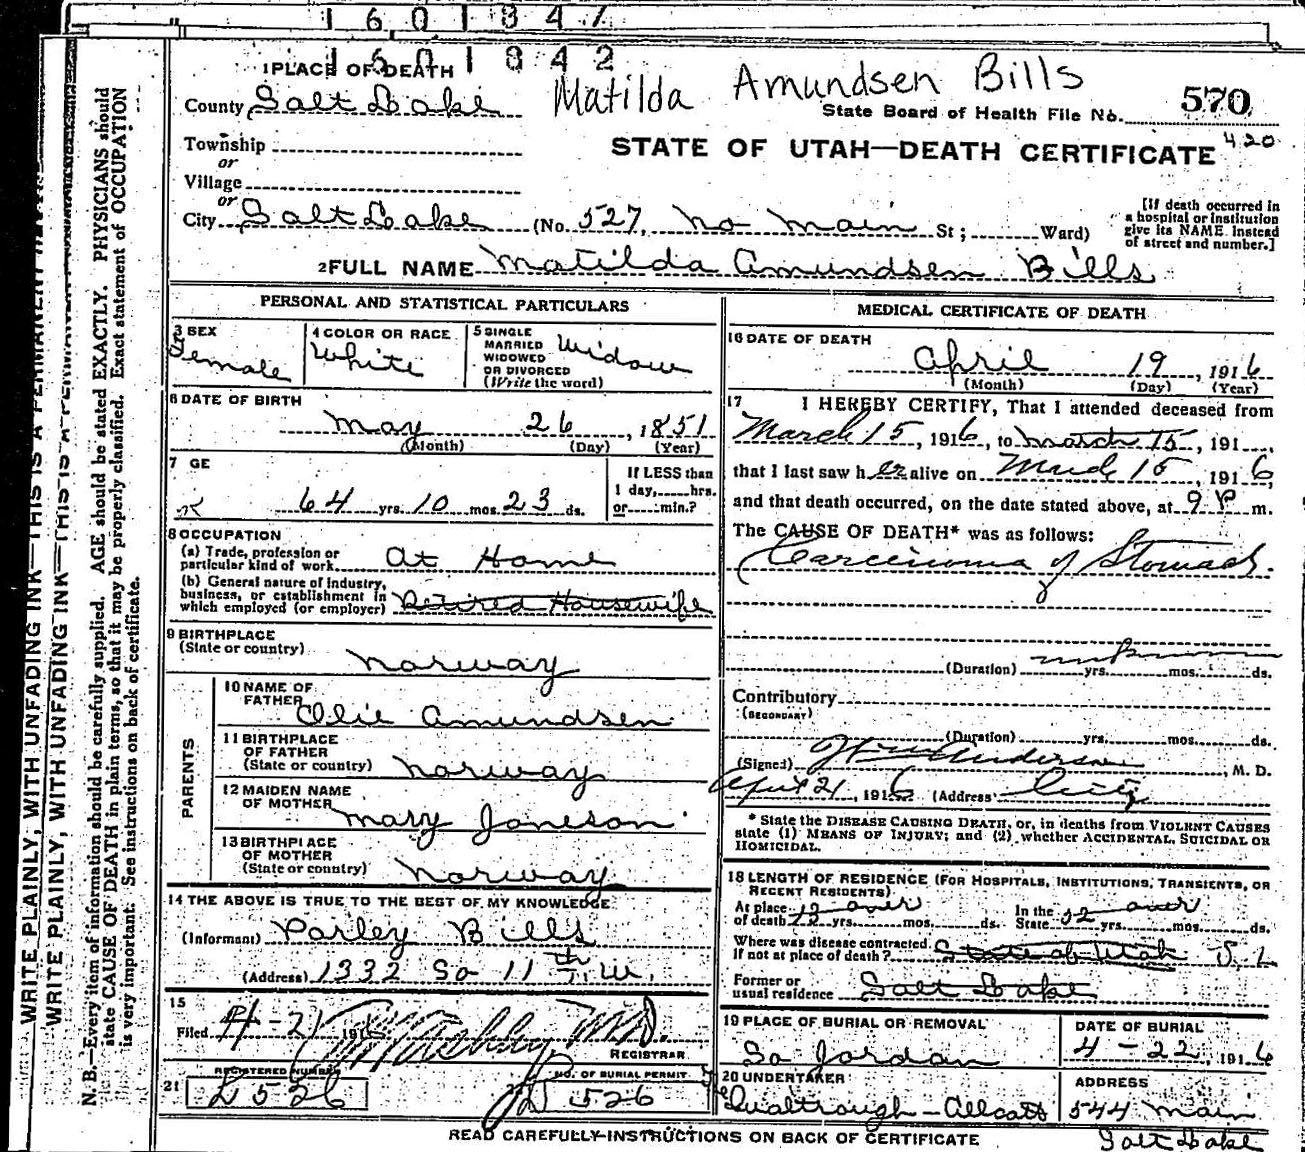 160184
1601842
1 PLACE OF DEATH
Matilda Amundsen Bills
County Salt Lake
State Board of Health File No. 570
420
Township
or
Village
or
STATE OF UTAH—DEATH CERTIFICATE
City Salt Lake (No. 527, No Main St; Ward)
[If death occurred in
a hospital or institution
give its NAME instead
of street and number.]
2 FULL NAME Matilda Amundsen Bills
PERSONAL AND STATISTICAL PARTICULARS
3 SEX
Female
4 COLOR OR RACE
White
5 SINGLE
MARRIED
WIDOWED
OR DIVORCED
(Write the word)
Widow
6 DATE OF BIRTH
May 26, 1851
(Month) (Day) (Year)
7 GE
64 yrs. 10 mos. 23 ds.
If LESS than
1 day, hrs.
or min.?
8 OCCUPATION
(a) Trade, profession or
particular kind of work At Home
(b) General nature of industry,
business, or establishment in
which employed (or employer) Retired Housewife
9 BIRTHPLACE
(State or country) Norway
PARENTS
10 NAME OF
FATHER Olie Amundsen
11 BIRTHPLACE
OF FATHER
(State or country) Norway
12 MAIDEN NAME
OF MOTHER Mary Joneson
13 BIRTHPLACE
OF MOTHER
(State or country) Norway
14 THE ABOVE IS TRUE TO THE BEST OF MY KNOWLEDGE
(Informant) Parley Bills
(Address) 1332 So 11th W.
15
Filed 4-21 191 M.D.
REGISTRAR
REGISTERED NUMBER
21
D 526
NO. OF BURIAL PERMIT
D 526
MEDICAL CERTIFICATE OF DEATH
16 DATE OF DEATH
April 19, 1916
(Month) (Day) (Year)
17 I HEREBY CERTIFY, That I attended deceased from
March 15, 1916, to March 15, 191
that I last saw h er alive on March 15, 1916,
and that death occurred, on the date stated above, at 9 P m.
The CAUSE OF DEATH* was as follows:
Carcinoma of Stomach.
(Duration) unknown yrs. mos. ds.
Contributory
(SECONDARY)
(Duration) yrs. mos. ds.
(Signed) Anderson, M. D.
April 21, 1916 (Address) City
* State the DISEASE CAUSING DEATH, or, in deaths from VIOLENT CAUSES
state (1) MEANS OF INJURY; and (2) whether ACCIDENTAL, SUICIDAL OR
HOMICIDAL.
18 LENGTH OF RESIDENCE (FOR HOSPITALS, INSTITUTIONS, TRANSIENTS, OR
RECENT RESIDENTS)
At place
of death 12 over yrs. mos. ds.
In the
State 52 over yrs. mos. ds.
Where was disease contracted
If not at place of death? State of Utah S. L
Former or
usual residence Salt Lake
19 PLACE OF BURIAL OR REMOVAL
So Jordan
DATE OF BURIAL
4-22, 1916
20 UNDERTAKER
Qualtrough-Allcott
ADDRESS
544 Main
Salt Lake
READ CAREFULLY INSTRUCTIONS ON BACK OF CERTIFICATE
WRITE PLAINLY, WITH UNFADING INK—THIS IS A PERMANENT
WRITE PLAINLY, WITH UNFADING INK—THIS IS A PERMANENT
N. B.—Every item of information should be carefully supplied. AGE should be stated EXACTLY. PHYSICIANS should
state CAUSE OF DEATH in plain terms, so that it may be properly classified. Exact statement of OCCUPATION
is very important. See instructions on back of certificate.